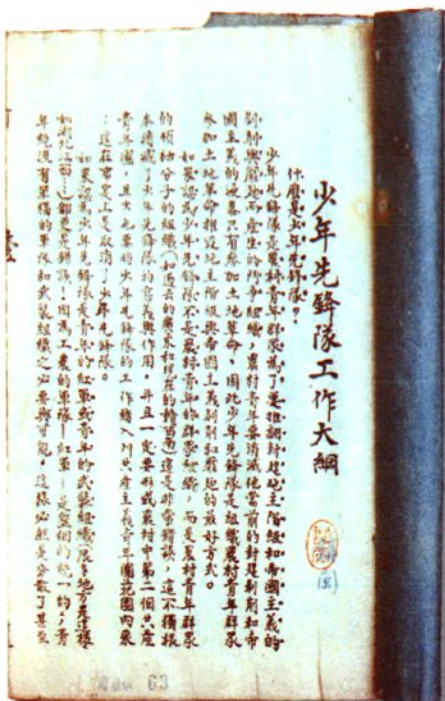 少年先鋒隊工作大綱
什麼是少年先鋒隊？
少年先鋒隊是農村青年群眾為了要推翻封建地主階級和帝國主義的
剝削與壓迫而產生的鬥爭組織，農村青年要消滅他當前的封建剝削和帝
國主義的壓迫只有參加土地革命，因此少年先鋒隊是組織農村青年群眾
參加土地革命推毀地主階級與帝國主義剝削和壓迫的最好方式。
如果認為少年先鋒隊不是農村青年的群眾組織，而是農村青年群眾
的積極分子的組織（如過去的廣東和現在的贛西南）這是非常錯誤，這不獨根
本消滅了少年先鋒隊的意義與作用，并且一定要形成農村中第二個共產
青年團，且又要將少年先鋒隊的工作轉入到共產主義青年團範圍內來
：這在事實上是取消了少年先鋒隊。
如果認為少年先鋒隊是青年的紅軍或青年的武裝組織（很多地方是這樣
如湖北江西）都是更錯誤！因為工農的軍隊—紅軍—是整個的統一的，青
年絕沒有單獨的軍隊和武裝組織之必要與可能，這樣必然是分散了甚至
63